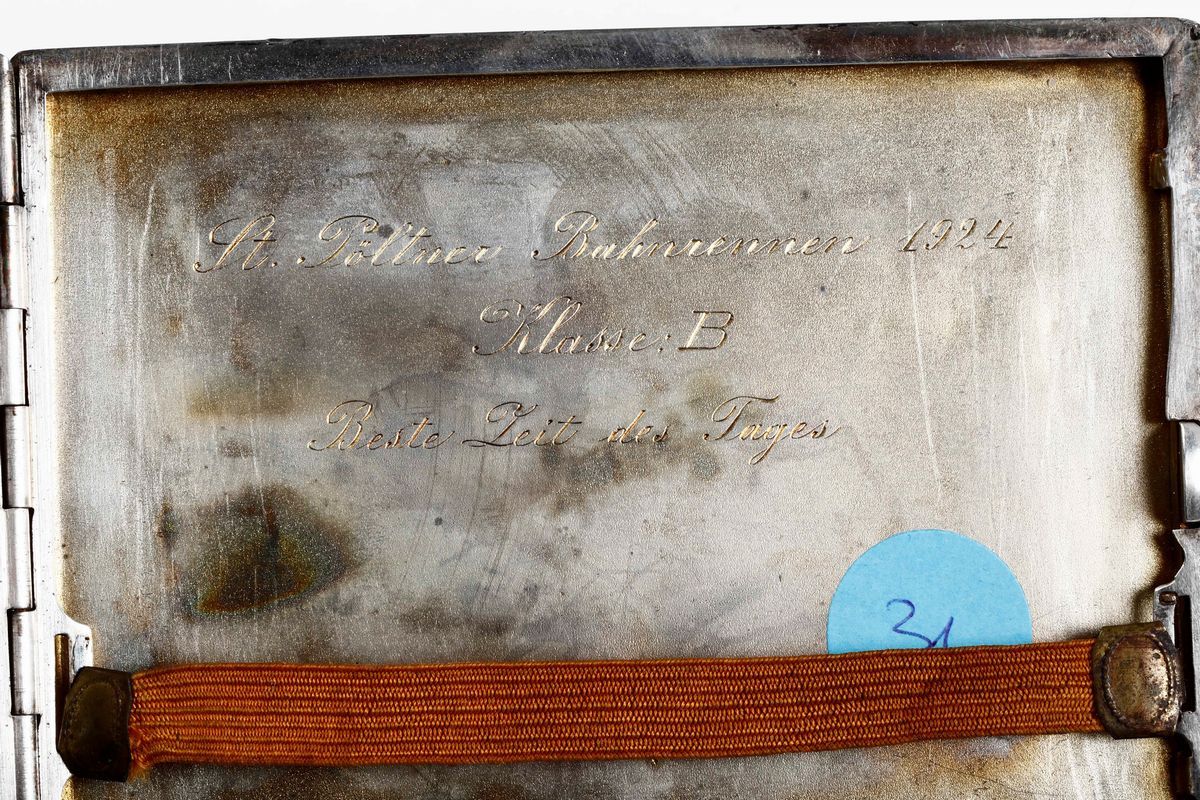 St. Pöltner Bahnrennen 1924
Klasse: B
Beste Zeit des Tages